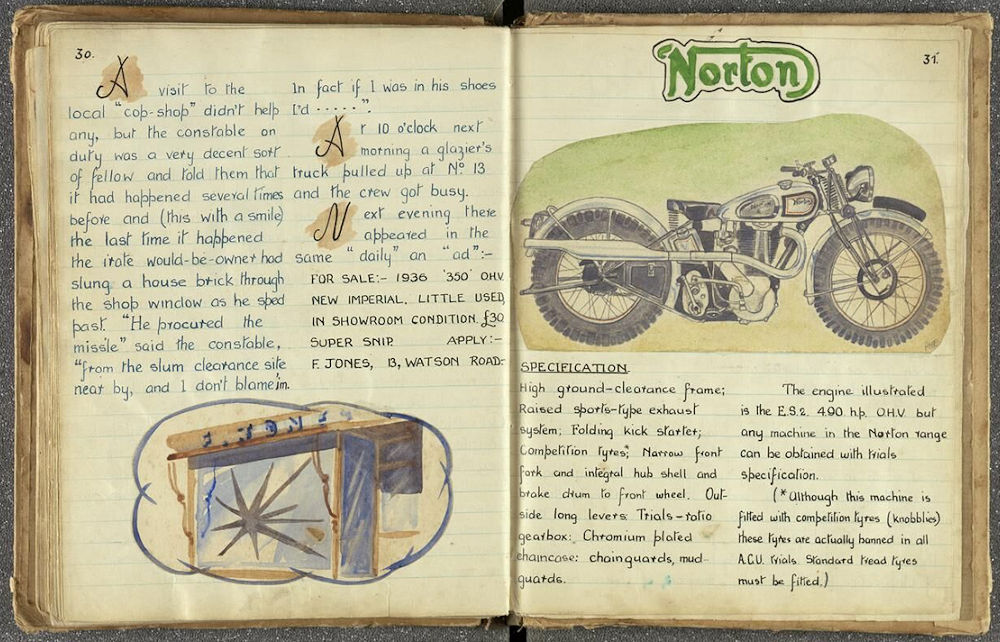 30.
A visit to the
local "cop-shop" didn't help
any, but the constable on
duty was a very decent sort
of fellow and told them that
it had happened several times
before and (this with a smile)
the last time it happened
the irate would-be-owner had
slung a house brick through
the shop window as he sped
past. "He procured the
missile" said the constable,
"from the slum clearance site
near by, and I don't blame 'im.
In fact if I was in his shoes
I'd ·····".
At 10 o'clock next
morning a glazier's
truck pulled up at No 13
and the crew got busy.
Next evening there
appeared in the
same "daily" an "ad":-
FOR SALE:- 1936 '350' OHV
NEW IMPERIAL. LITTLE USED,
IN SHOWROOM CONDITION. £30
SUPER SNIP. APPLY:-
F. JONES, 13, WATSON ROAD:-
31.
Norton
Norton
SPECIFICATION.
High ground-clearance frame;
Raised sports-type exhaust
system; Folding kick starter;
Competition tyres*; Narrow front
fork and integral hub shell and
brake drum to front wheel. Out-
side long levers: Trials-ratio
gearbox: Chromium plated
chaincase: chainguards, mud-
guards.
The engine illustrated
is the E.S.2. 490 h.p. O.H.V. but
any machine in the Norton range
can be obtained with trials
specification.
(*Although this machine is
fitted with competition tyres (knobblies)
these tyres are actually banned in all
A.C.U. trials. Standard tread tyres
must be fitted.)